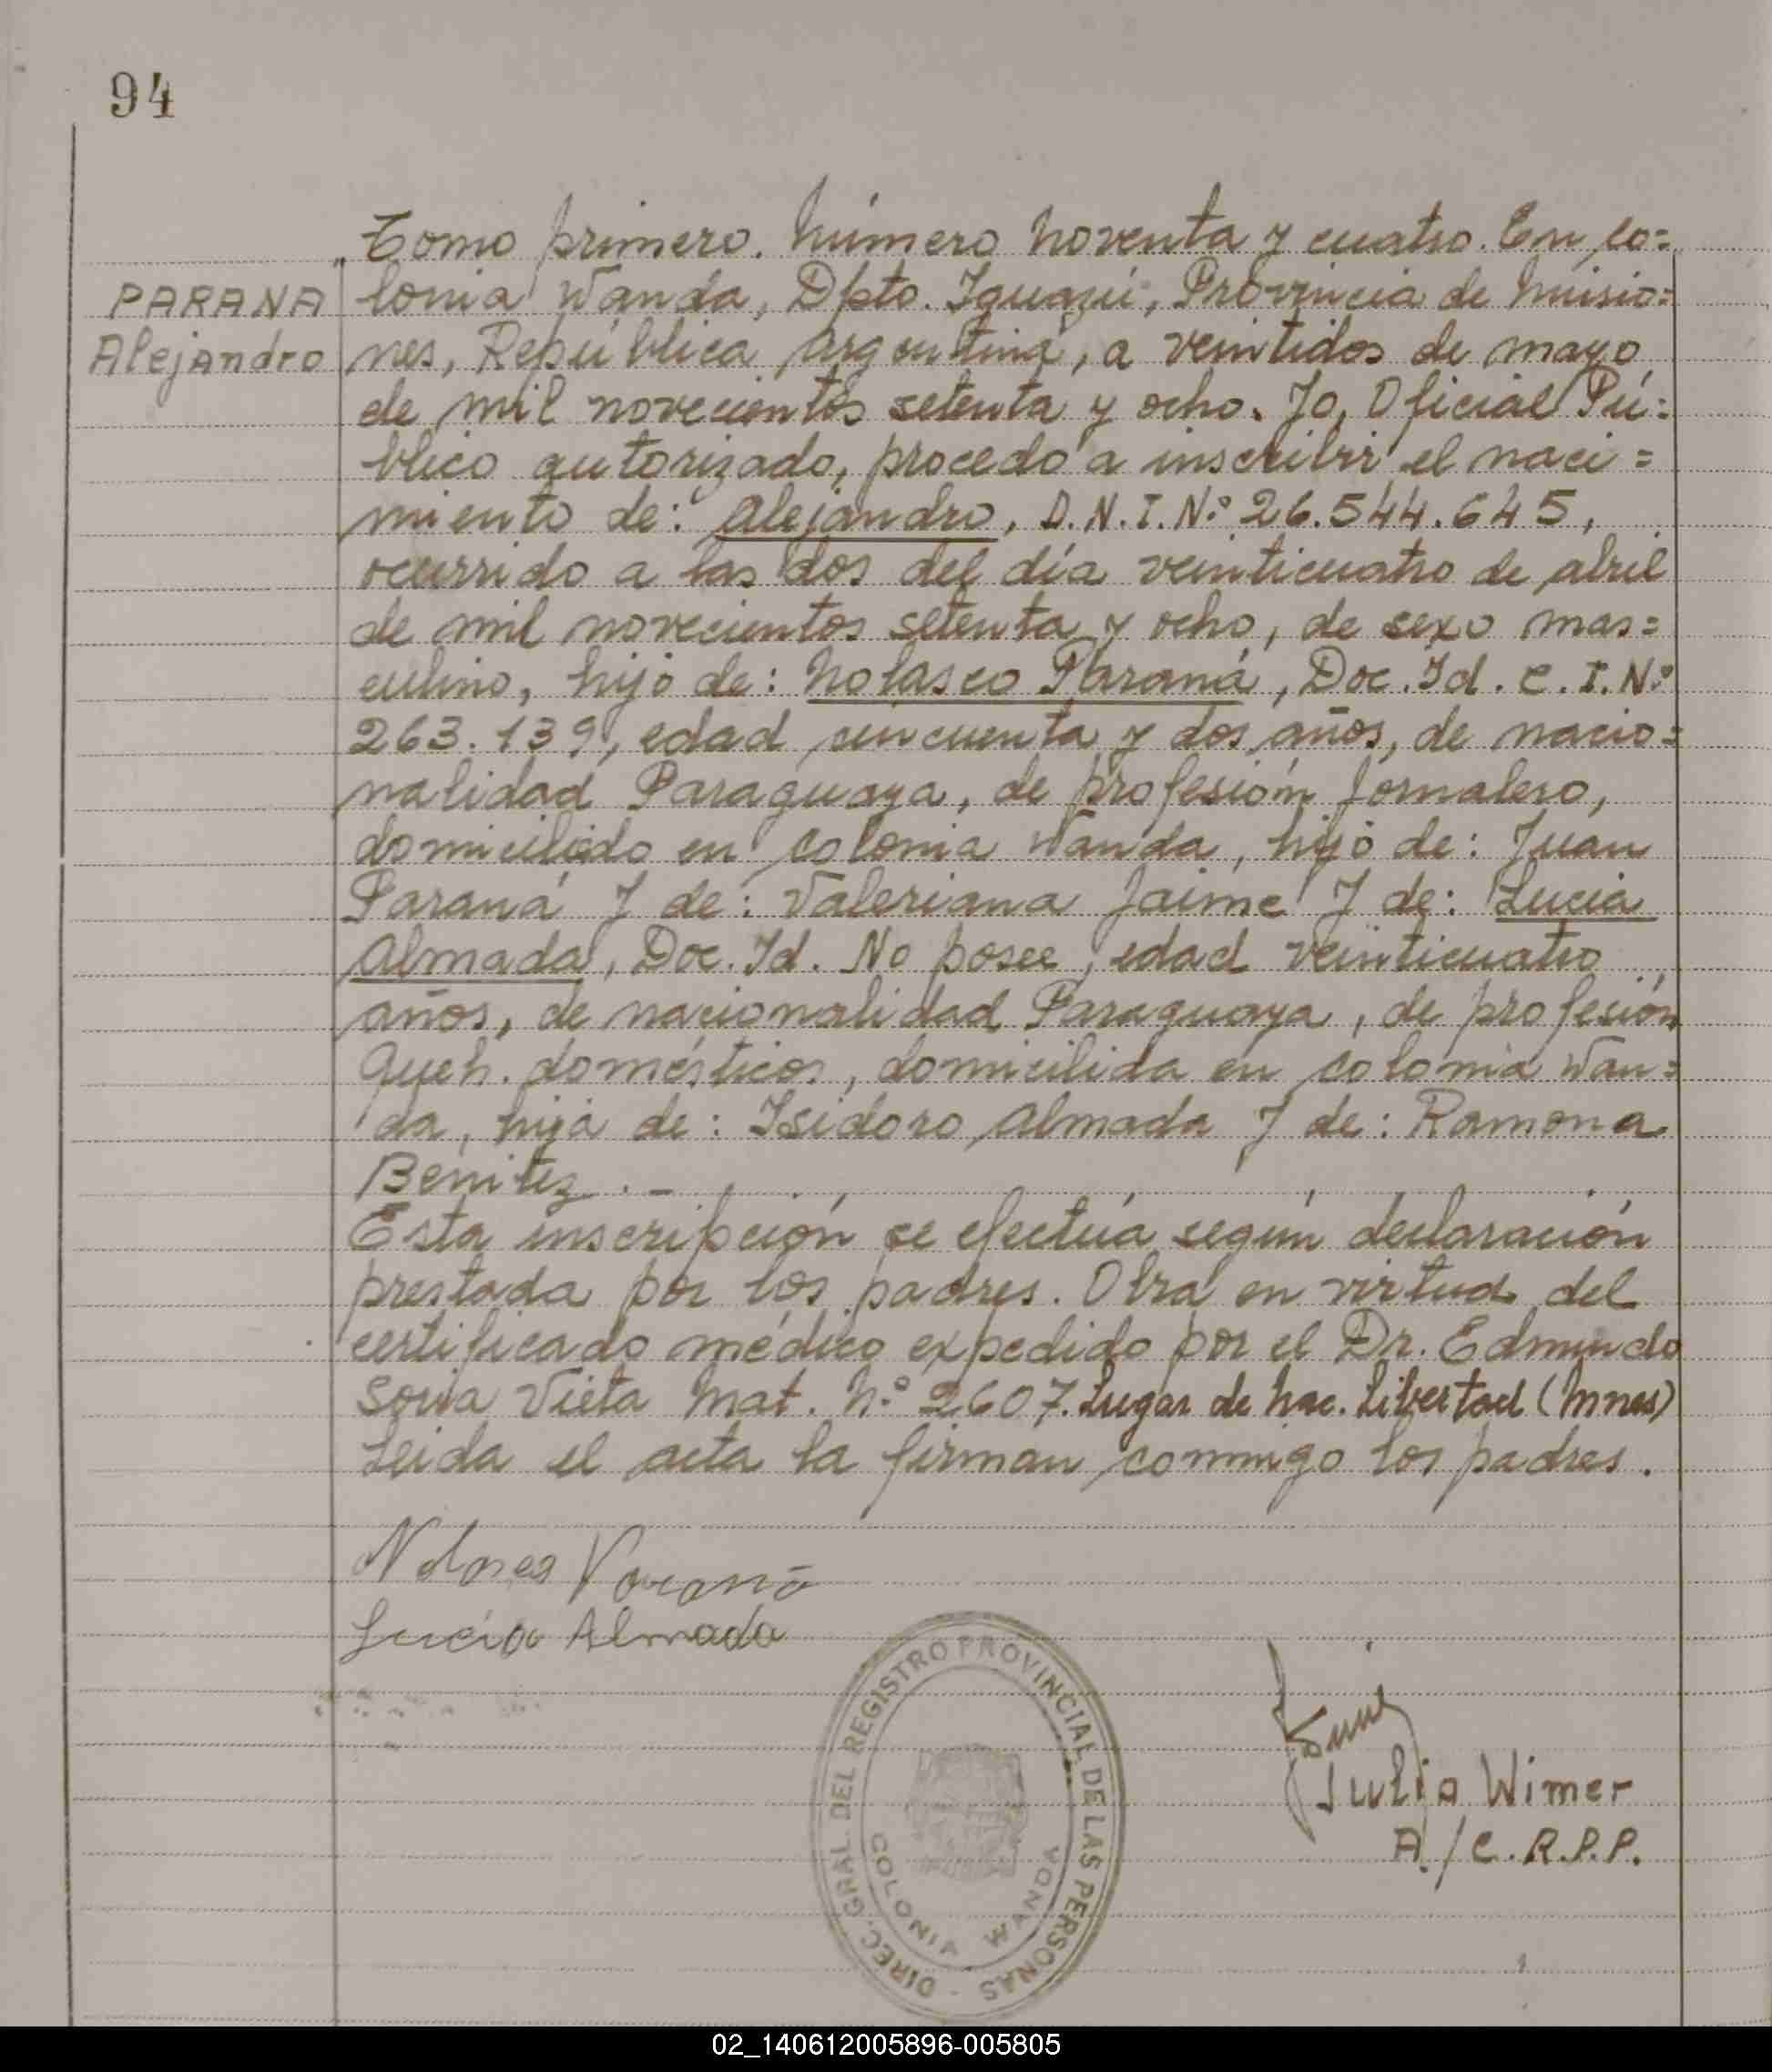 94
Tomo primero. Número noventa y cuatro. En Co=
PARANA
lonia Wanda, Dpto. Iguazú, Provincia de Misio=
Alejandro
nes, República Argentina, a veintidos de mayo
de mil novecientos setenta y ocho. Yo, Oficial Pú=
blico autorizado, procedo a inscribir el naci=
miento de: Alejandro, D.N.I.Nº 26.544.645,
ocurrido a las dos del día veinticuatro de abril
de mil novecientos setenta y ocho, de sexo mas=
culino, hijo de: Nolasco Paraná, Doc. Id. C.I.Nº
263.139, edad cincuenta y dos años, de nacio=
nalidad Paraguaya, de profesión Jornalero,
domiciliado en Colonia Wanda, hijo de: Juan
Paraná Y de: Valeriana Jaime Y de: Lucia
Almada, Doc. Id. No posee, edad veinticuatro
años, de nacionalidad Paraguaya, de profesión
Queh. domésticos, domicilida en Colonia Wan=
da, hija de: Isidoro Almada Y de: Ramona
Benitez.-
Esta inscripción se efectúa según declaración
prestada por los padres. Obra en virtud del
certificado médico expedido por el Dr. Edmundo
Soria Vieta Mat. Nº 2607. Lugar de Nac. Libertad (Mnes)
Leida el acta la firman conmigo los padres.
Lucia Almada
DIREC. GRAL. DEL REGISTRO PROVINCIAL DE LAS PERSONAS -
COLONIA WANDA
Julio Wimer
A/C.R.P.P.
02_140612005896-005805